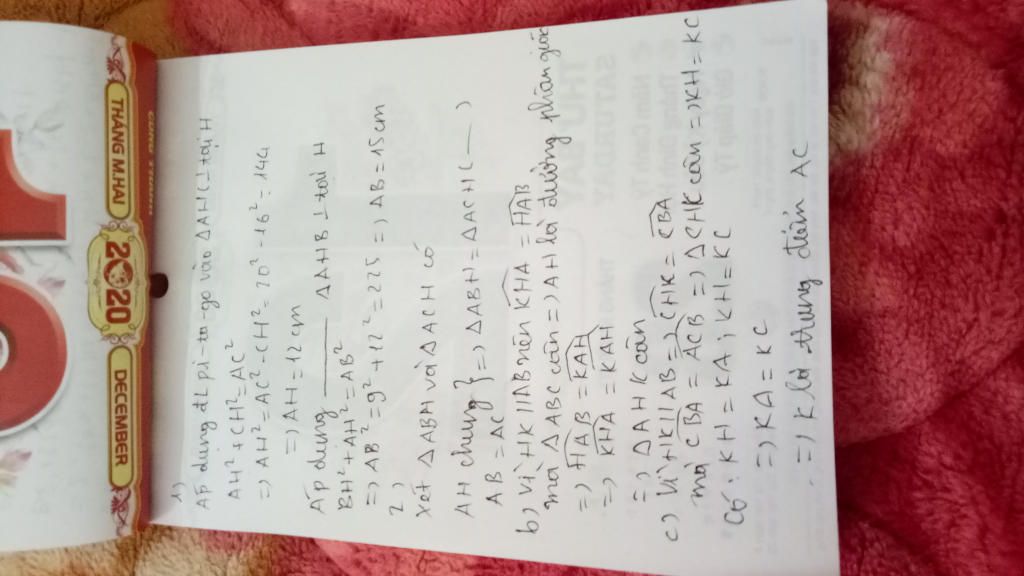 THÁNG M.HAI
2020
DECEMBER
1)
Áp dụng đL pi-ta-go vào ΔAHC ⊥ tại H
AH²+CH²=AC²
=) AH²=AC²-CH²=20²-16²=144
=) AH=12cm
Áp dụng ——— ΔAHB ⊥ tại H
BH²+AH²=AB²
=) AB²=9²+12²=225 =) AB=15cm
2)
Xét ΔABH và ΔACH có
AH chung
AB = AC } =) ΔABH = ΔACH ( — )
b) Vì HK // AB nên KHA = HAB
mà ΔABC cân =) AH là đường phân giác
=) HAB = KAH
=) KHA = KAH
=) ΔAHK cân
c) Vì HK // AB =) CHK = CBA
mà CBA = ACB =) ΔCHK cân =) KH = KC
Có: KH = KA ; KH = KC
=) KA = KC
=) K là trung điểm AC